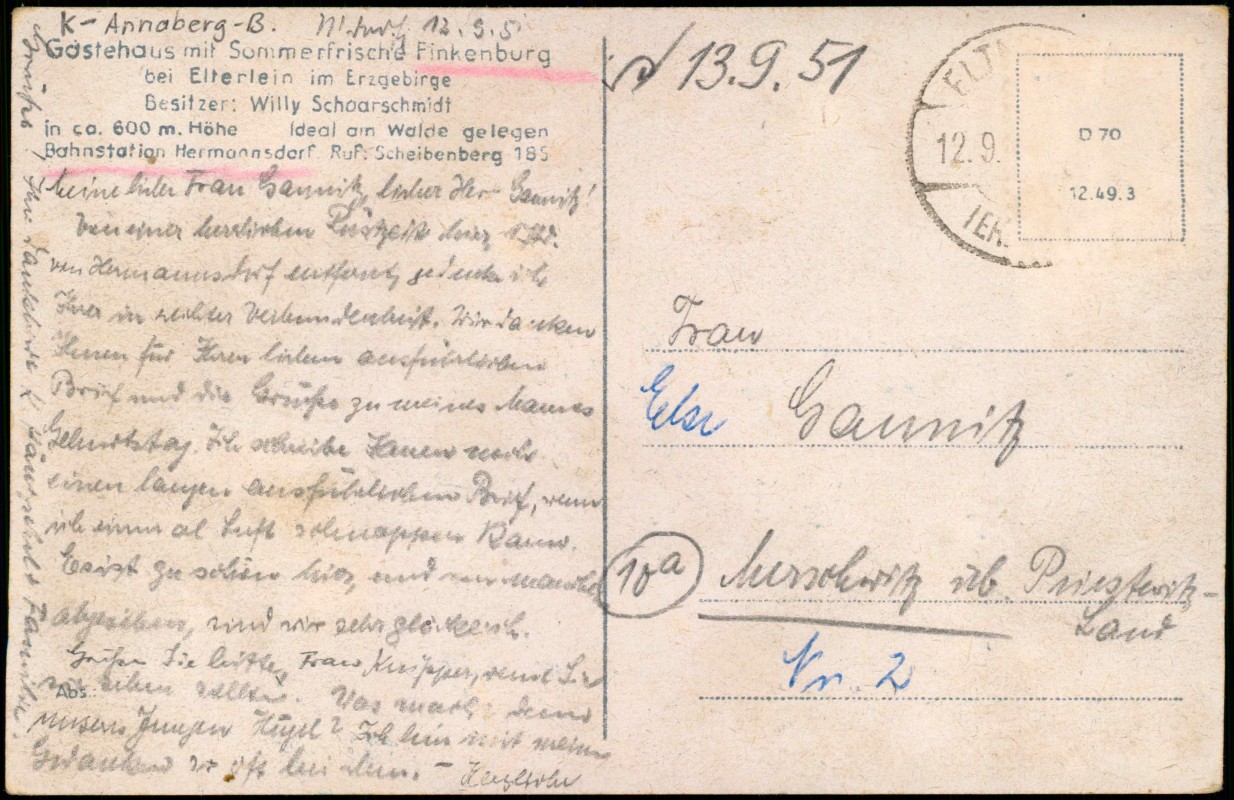 K- Annaberg-B. 12.9.5
Gästehaus mit Sommerfrische Finkenburg
bei Elterlein im Erzgebirge
Besitzer: Willy Schaarschmidt
in ca. 600 m. Höhe Ideal am Walde gelegen
Bahnstation Hermannsdorf. Ruf: Scheibenberg 185
Meine liebe Frau Gaunitz, lieber Herr Gaunitz!
Von einer herrlichen Rüstzeit hier
von Hermannsdorf entfernt, gedenke ich
Ihrer in rechter Verbundenheit. Wir danken
Ihnen für Ihren lieben ausführlichen
Brief und die Grüße zu meines Mannes
Geburtstag. Ich schreibe Ihnen noch
einen langen ausführlichen Brief, wenn
ich einmal Luft schnappen kann.
Es ist zu schön hier, und von
abgesehen, sind wir sehr glücklich.
Grüßen Sie bitte, Frau Knipper, wenn Sie
sie sehen sollten. Was macht denn
Abs.:
unsere Jungen Hügel? Ich bin mit meinen
Gedanken so oft bei den. – Herzliche
Grüße! Ihre dankbare L. Familie.
13.9.51
ELT
12.9.
D 70
12.49.3
Frau
Else Gaunitz
10a Merschwitz üb. Priestewitz-
Land
Nr. 2